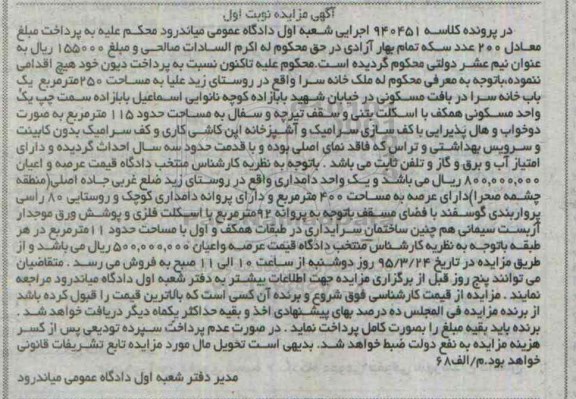 آگهی مزایده نوبت اول
در پرونده کلاسه ۹۴۰۴۵۱ اجرایی شعبه اول دادگاه عمومی میاندرود محکم علیه به پرداخت مبلغ
معادل ۲۰۰ عدد سکه تمام بهار آزادی در حق محکوم له اکرم السادات صالحی و مبلغ ۱۵۵۰۰۰ ریال به
عنوان نیم عشر دولتی محکوم گردیده است.محکوم علیه تاکنون نسبت به پرداخت دیون خود هیچ اقدامی
ننموده،باتوجه به معرفی محکوم له ملک خانه سرا واقع در روستای زید علیا به مساحت ۲۵۰مترمربع یک
باب خانه سرا در بافت مسکونی در خیابان شهید بابازاده کوچه نانوایی اسماعیل بابازاده سمت چپ یک
واحد مسکونی همکف با اسکلت بتنی و سقف تیرچه و سفال به مساحت حدود ۱۱۵ مترمربع به صورت
دوخواب و هال پذیرایی با کف سازی سرامیک و آشپزخانه اپن کاشی کاری و کف سرامیک بدون کابینت
و سرویس بهداشتی و تراس که فاقد نمای اصلی بوده و با قدمت حدود سه سال احداث گردیده و دارای
امتیاز آب و برق و گاز و تلفن ثابت می باشد . باتوجه به نظریه کارشناس منتخب دادگاه قیمت عرصه و اعیان
۸۰۰,۰۰۰,۰۰۰ ریال می باشد و یک واحد دامداری واقع در روستای زید ضلع غربی جاده اصلی(منطقه
چشمه صحرا)دارای عرصه به مساحت ۴۰۰ مترمربع و دارای پروانه دامداری کوچک و روستایی ۸۰ راسی
پرواربندی گوسفند با فضای مسقف باتوجه به پروانه ۹۲مترمربع با اسکلت فلزی و پوشش ورق موجدار
آزبست سیمانی هم چنین ساختمان سرایداری در طبقات همکف و اول با مساحت حدود ۱۱مترمربع در هر
طبقه باتوجه به نظریه کارشناس منتخب دادگاه قیمت عرصه واعیان ۵۰۰,۰۰۰,۰۰۰ ریال می باشد و از
طریق مزایده در تاریخ ۹۵/۳/۲۴ روز دوشنبه از ساعت ۱۰ الی ۱۱ صبح به فروش می رسد . متقاضیان
می توانند پنج روز قبل از برگزاری مزایده جهت اطلاعات بیشتر به دفتر شعبه اول دادگاه میاندرود مراجعه
نمایند . مزایده از قیمت کارشناسی فوق شروع و برنده آن کسی است که بالاترین قیمت را قبول کرده باشد
از برنده مزایده فی المجلس ده درصد بهای پیشنهادی اخذ و بقیه حداکثر یکماه دیگر دریافت خواهد شد .
برنده باید بقیه مبلغ را بصورت کامل پرداخت نماید . در صورت عدم پرداخت سپرده تودیعی پس از کسر
هزینه مزایده به نفع دولت ضبط خواهد شد. بدیهی است تحویل مال مورد مزایده تابع تشریفات قانونی
خواهد بود.م/الف۶۸
مدیر دفتر شعبه اول دادگاه عمومی میاندرود